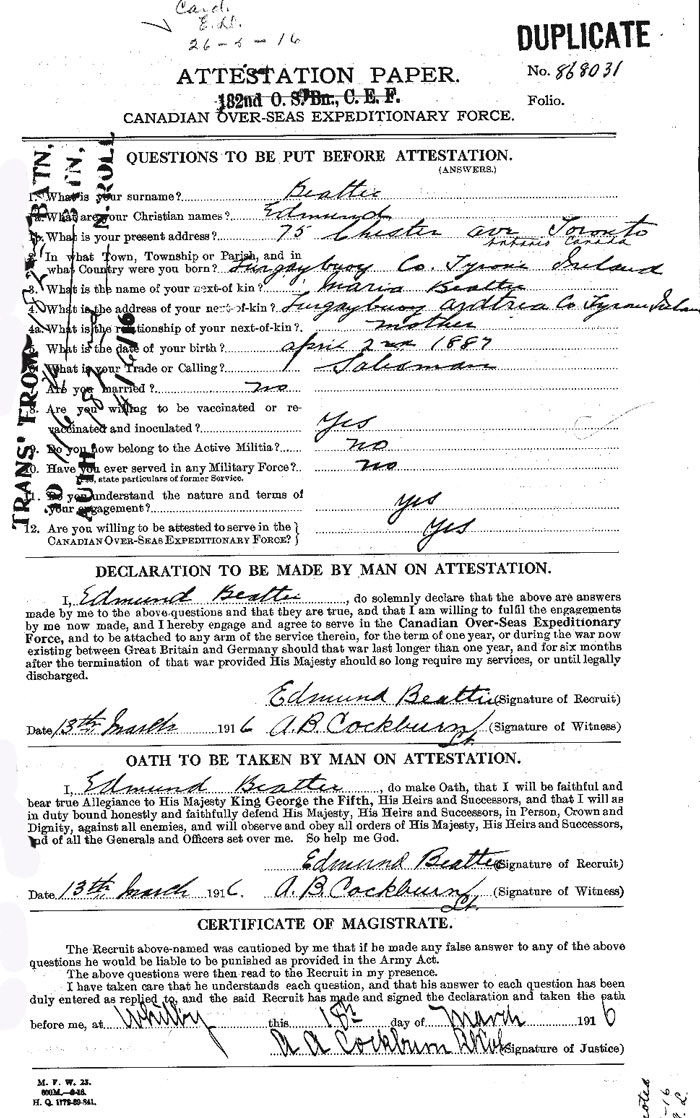 Card.
E.D.
26-5-16
DUPLICATE
ATTESTATION PAPER.
No. 868031
182nd O. S. Bn., C. E. F.
Folio.
CANADIAN OVER-SEAS EXPEDITIONARY FORCE.
QUESTIONS TO BE PUT BEFORE ATTESTATION.
(ANSWERS.)
1. What is your surname? Beattie
1a. What are your Christian names? Edmund
1b. What is your present address? 75 Chester ave Toronto
Ontario Canada
2. In what Town, Township or Parish, and in
what Country were you born? Turgaybuoy Co. Tyrone Ireland
3. What is the name of your next-of kin? Maria Beattie
4. What is the address of your next-of-kin? Turgaybuoy Ardtrea Co Tyrone Ireland
4a. What is the relationship of your next-of-kin? Mother
5. What is the date of your birth? april 2nd 1887
6. What is your Trade or Calling? Salesman
7. Are you married? no
8. Are you willing to be vaccinated or re-
vaccinated and inoculated? Yes
9. Do you now belong to the Active Militia? no
10. Have you ever served in any Military Force? no
If so, state particulars of former Service.
11. Do you understand the nature and terms of
your engagement? yes
12. Are you willing to be attested to serve in the
CANADIAN OVER-SEAS EXPEDITIONARY FORCE? Yes
TRANS' FROM BATN,
TO 116 BATN,
AUTH N. ROLL
DECLARATION TO BE MADE BY MAN ON ATTESTATION.
I, Edmund Beattie, do solemnly declare that the above are answers
made by me to the above questions and that they are true, and that I am willing to fulfil the engagements
by me now made, and I hereby engage and agree to serve in the Canadian Over-Seas Expeditionary
Force, and to be attached to any arm of the service therein, for the term of one year, or during the war now
existing between Great Britain and Germany should that war last longer than one year, and for six months
after the termination of that war provided His Majesty should so long require my services, or until legally
discharged.
Edmund Beattie (Signature of Recruit)
Date 13th March 1916 A. B. Cockburn Lt. (Signature of Witness)
OATH TO BE TAKEN BY MAN ON ATTESTATION.
I, Edmund Beattie, do make Oath, that I will be faithful and
bear true Allegiance to His Majesty King George the Fifth, His Heirs and Successors, and that I will as
in duty bound honestly and faithfully defend His Majesty, His Heirs and Successors, in Person, Crown and
Dignity, against all enemies, and will observe and obey all orders of His Majesty, His Heirs and Successors,
and of all the Generals and Officers set over me. So help me God.
Edmund Beattie (Signature of Recruit)
Date 13th March 1916. A. B. Cockburn Lt. (Signature of Witness)
CERTIFICATE OF MAGISTRATE.
The Recruit above-named was cautioned by me that if he made any false answer to any of the above
questions he would be liable to be punished as provided in the Army Act.
The above questions were then read to the Recruit in my presence.
I have taken care that he understands each question, and that his answer to each question has been
duly entered as replied to, and the said Recruit has made and signed the declaration and taken the oath
before me, at Whitby this day of March 1916
Cockburn (Signature of Justice)
M. F. W. 23.
H. Q. 1772-39-841.